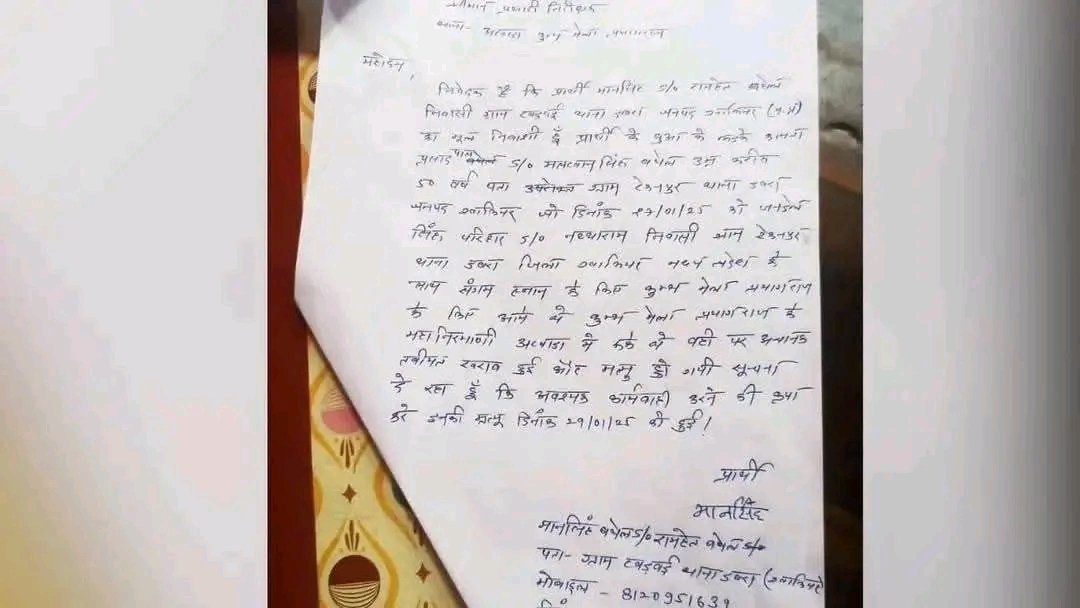 श्रीमान प्रभारी निरीक्षक
थाना- अखाडा कुम्भ मेला प्रयागराज
महोदय,
निवेदन है कि प्रार्थी मानसिंह S/O रामहेत बघेल
निवासी ग्राम थाना डबरा जनपद ग्वालियर (म.प्र)
का मूल निवासी हूँ प्रार्थी के बुआ के लडके कामता
प्रसाद पाल बघेल S/O मलखान सिंह बघेल उम्र करीब
50 वर्ष पता उपरोक्त ग्राम टेकनपुर थाना डबरा
जनपद ग्वालियर जो दिनाँक 27/01/25 को जनडेल
सिंह परिहार S/O नथ्थाराम निवासी ग्राम टेकनपुर
थाना डबरा जिला ग्वालियर मध्य प्रदेश के
साथ संगम स्नान के लिए कुम्भ मेला प्रयागराज
के लिए आये थे कुम्भ मेला प्रयागराज के
महानिरमाणी अखाडा मे रुके थे वही पर अचानक
तबीयत खराब हुई और मृत्यु हो गयी सूचना
दे रहा हूँ कि आवश्यक कार्यवाही करने की कृपा
करे इनकी मृत्यू दिनाँक 29/01/25 को हुई।
प्रार्थी
मानसिंह
मानसिंह बघेल S/O रामहेत बघेल S/O
पता- ग्राम थाना डबरा (ग्वालियर
मोबाइल - 8120951639